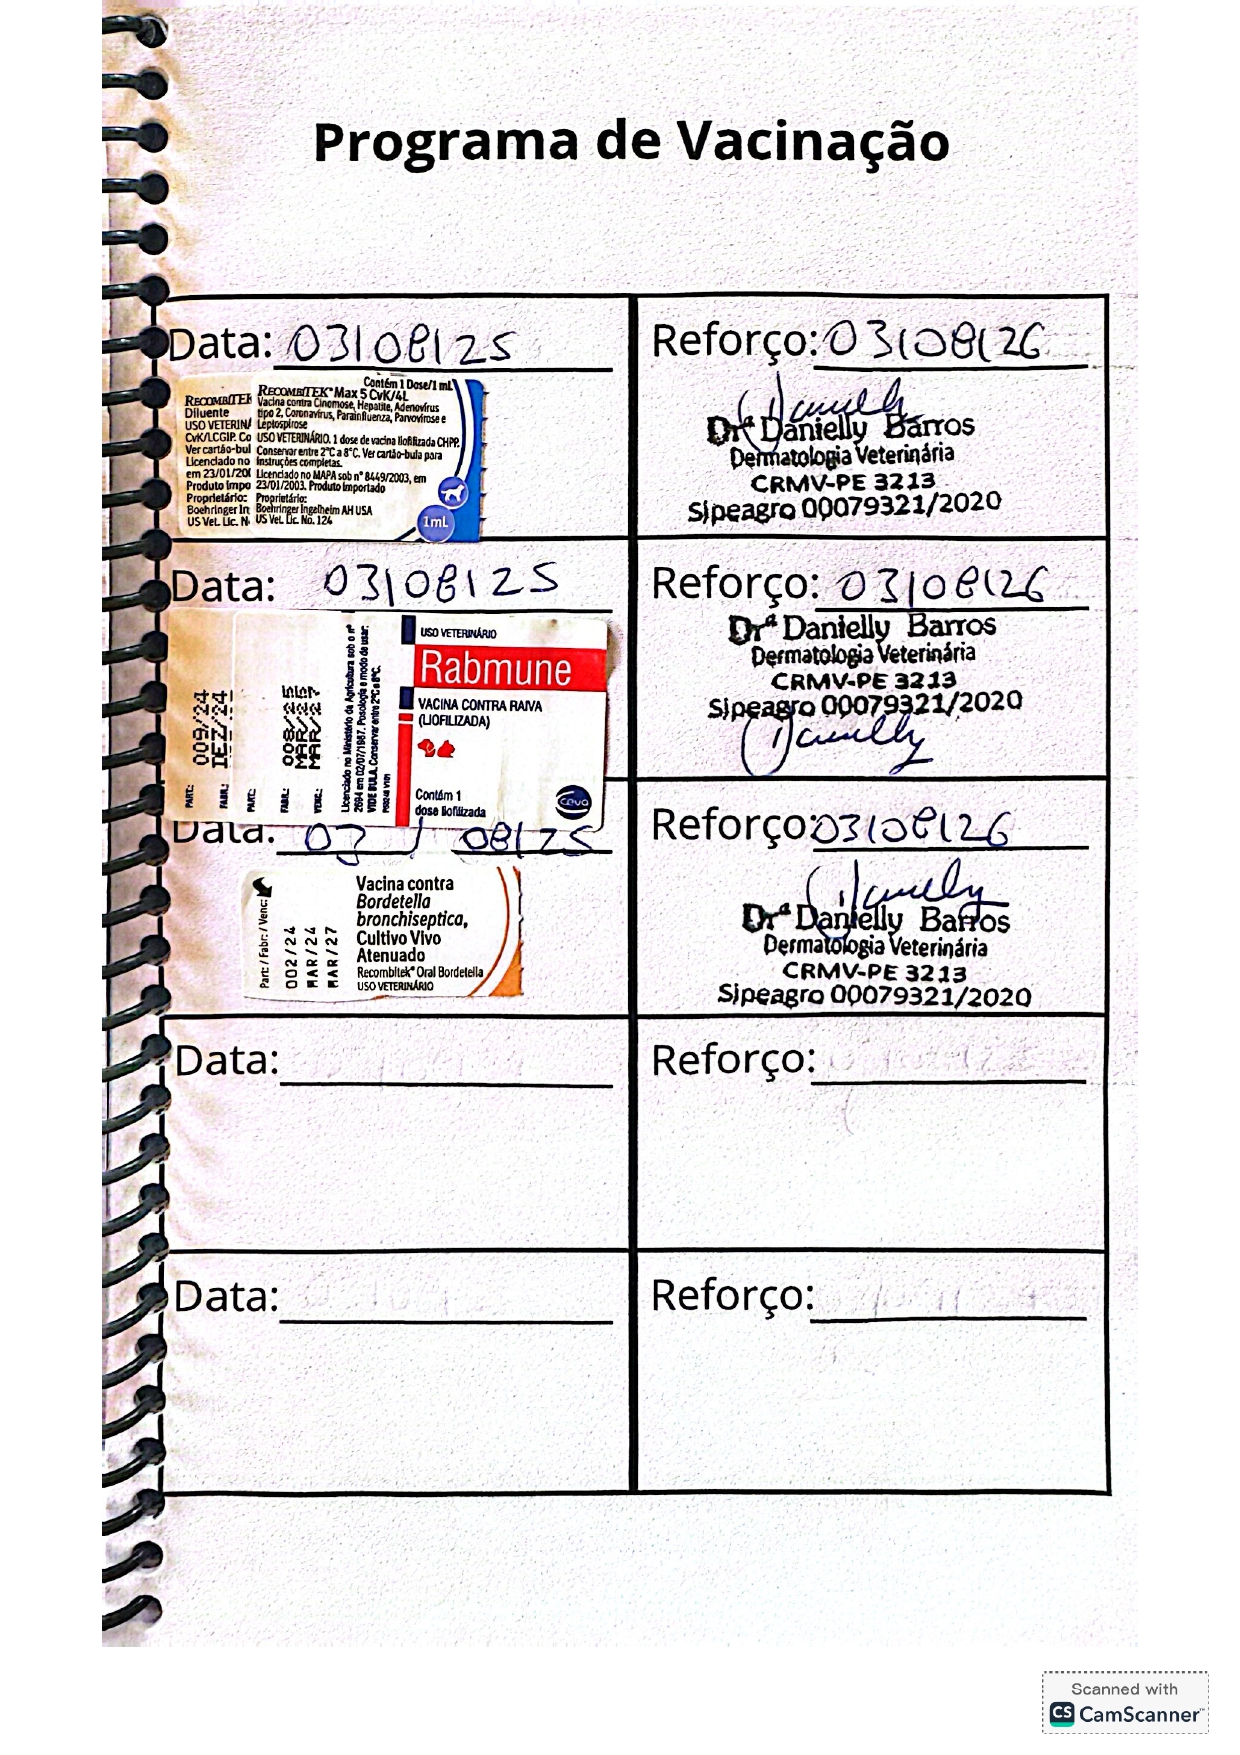 Programa de Vacinação
Data: 03/08/25
Reforço: 03/08/26
Contém 1 Dose/1 mL
RECOMBITEK
Diluente
USO VETERIN
CvK/LCGIP. Co
Ver cartão-bul
Licenciado no
em 23/01/200
Produto Impo
Proprietário:
Boehringer In
US Vet. Lic. N
RECOMBITEK® Max 5 CvK/4L
Vacina contra Cinomose, Hepatite, Adenovírus
tipo 2, Coronavírus, Parainfluenza, Parvovirose e
Leptospirose
USO VETERINÁRIO. 1 dose de vacina liofilizada CHPP.
Conservar entre 2°C a 8°C. Ver cartão-bula para
instruções completas.
Licenciado no MAPA sob nº 8449/2003, em
23/01/2003. Produto Importado
Proprietário:
Boehringer Ingelheim AH USA
US Vet. Lic. No. 124
1mL
Danielly
Drª Danielly Barros
Dermatologia Veterinária
CRMV-PE 3213
Sipeagro 00079321/2020
Data: 03/08/25
Reforço: 03/08/26
PART.: 009/24
FABR.: DEZ/24
PART.: 008/25
FABR.: MAR/25
VENC.: MAR/27
Licenciado no Ministério da Agricultura sob o nº
2694 em 02/07/1987. Posologia e modo de usar:
VIDE BULA. Conservar entre 2°C e 8°C.
USO VETERINÁRIO
Rabmune
VACINA CONTRA RAIVA
(LIOFILIZADA)
Contém 1
dose liofilizada
Ceva
Drª Danielly Barros
Dermatologia Veterinária
CRMV-PE 3213
Sipeagro 00079321/2020
Danielly
Data: 03/08/25
Reforço: 03/08/26
Part: / Fabr: / Venc:
002/24
MAR/24
MAR/27
Vacina contra
Bordetella
bronchiseptica,
Cultivo Vivo
Atenuado
Recombitek® Oral Bordetella
USO VETERINÁRIO
Danielly
Drª Danielly Barros
Dermatologia Veterinária
CRMV-PE 3213
Sipeagro 00079321/2020
Data:
Reforço:
Data:
Reforço:
Scanned with
CS CamScanner